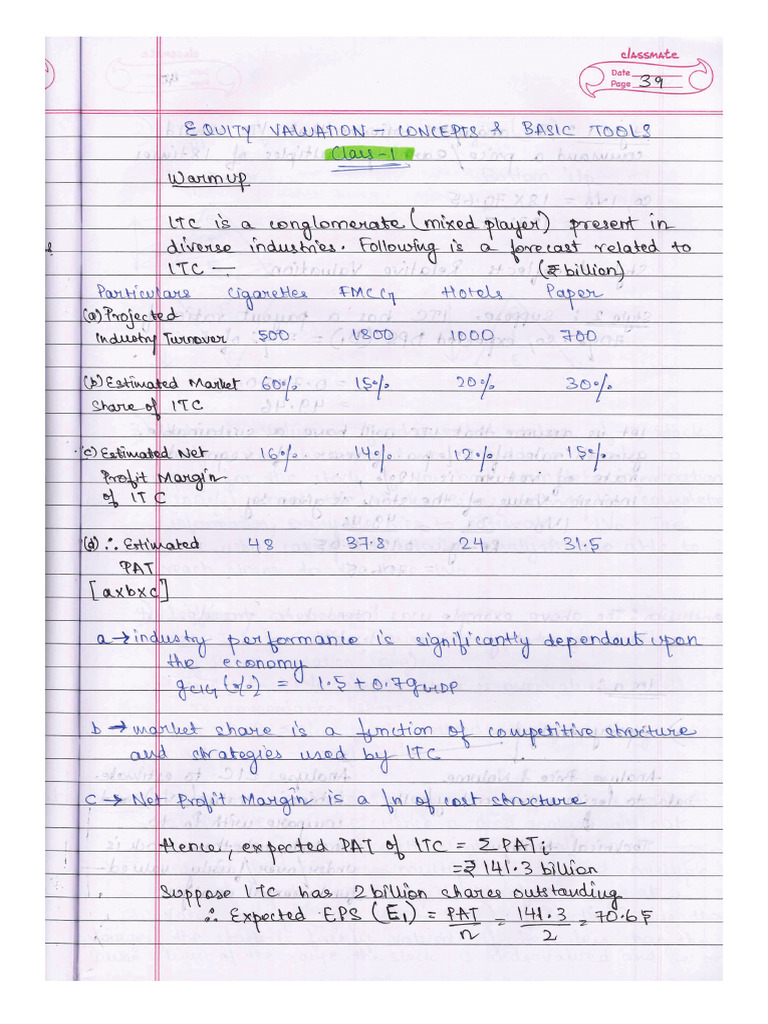 classmate
Date
Page 39
EQUITY VALUATION – CONCEPTS & BASIC TOOLS
Class-1
Warmup
ITC is a conglomerate (mixed player) present in
diverse industries. Following is a forecast related to
ITC — (₹ billion)
Particulars Cigarettes FMCG Hotels Paper
(a) Projected
Industry Turnover 500 1800 1000 700
(b) Estimated Market 60% 15% 20% 30%
Share of ITC
(c) Estimated Net 16% 14% 12% 15%
Profit Margin
of ITC
(d) ∴ Estimated 48 37.8 24 31.5
PAT
[axbxc]
a → industry performance is significantly dependent upon
the economy
gCIG (%) = 1.5 + 0.7gGDP
b → market share is a function of competitive structure
and strategies used by ITC
c → Net Profit Margin is a fn of cost structure
Hence, expected PAT of ITC = ΣPATi
= ₹ 141.3 billion
Suppose ITC has 2 billion shares outstanding
∴ Expected EPS (E₁) = PAT/n = 141.3/2 = 70.65